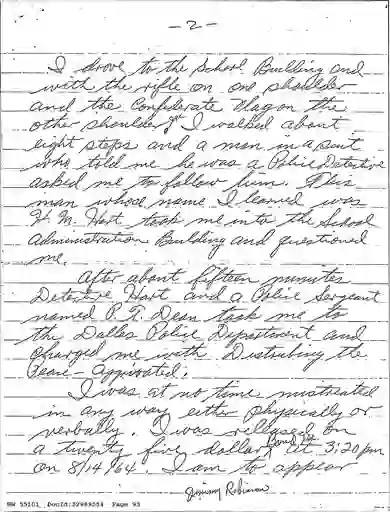 - 2 -
I drove to the School Building and
with the rifle on one shoulder
and the Confederate Flag on the
other shoulder I walked about
eight steps and a man in a suit
who told me he was a Police Detective
asked me to follow him. This
man whose name I learned was
H. M. Hart took me into the School
Administration Building and questioned
me.
After about fifteen minutes
Detective Hart and a Police Sergeant
named P. T. Dean took me to
the Dallas Police Department and
charged me with Disturbing the
Peace - Aggravated.
I was at no time mistreated
in any way either physically or
verbally. I was released on
a twenty five dollar Bond at 3:20 pm
on 8/14/64. I am to appear
Jimmy Robinson
NW 55101 DocId:32989554 Page 93